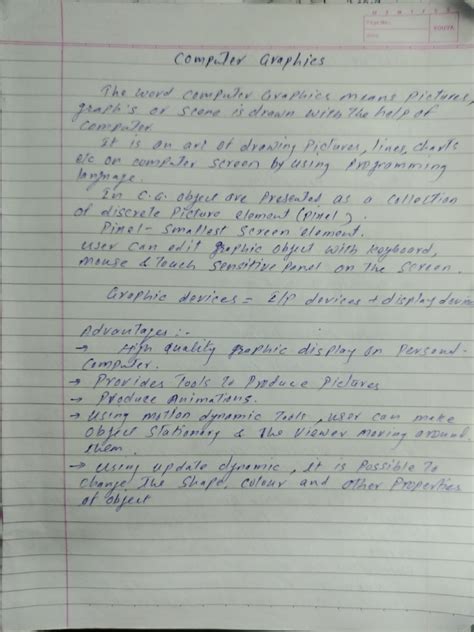 Computer Graphics
The word computer Graphics means Pictures,
graph's or Scene is drawn with the help of
Computer.
It is an art of drawing Pictures, lines, charts
etc on computer screen by using Programming
language.
In C.G. object are Presented as a collection
of discrete Picture element (Pixel).
Pixel- Smallest Screen element.
user can edit graphic object with keyboard,
mouse & touch sensitive panel on the screen.
Graphic devices = I/P devices + display devices
Advantages :-
→ High quality graphic display on Personal-
Computer.
→ Provides tools to Produce Pictures
→ Produce Animations.
→ Using motion dynamic tools, user can make
object stationary & the viewer moving around
them.
→ Using update dynamic, it is Possible to
change the shape, colour and other Properties
of object